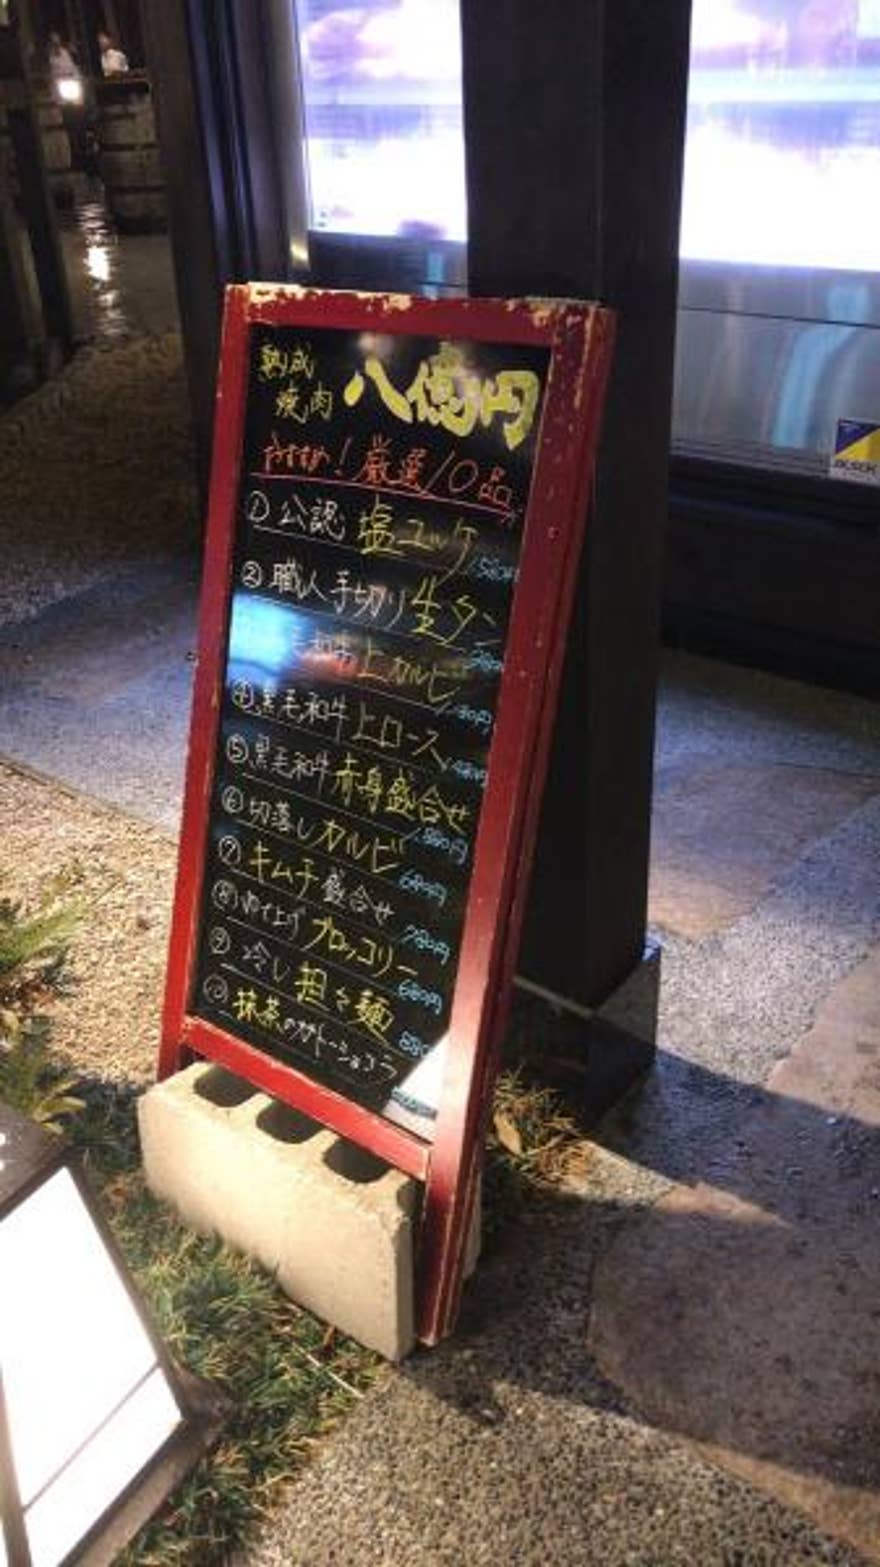 熟成
焼肉 八億円
おすすめ！厳選10品
① 公認 塩ユッケ
② 職人手切り生タン
毛和牛上カルビ
④ 黒毛和牛上ロース
⑤ 黒毛和牛赤身盛合せ
⑥ 切落しカルビ 680円
⑦ キムチ盛合せ 780円
⑧ 仕上げ ブロッコリー 680円
⑨ 冷し担々麺
⑩ 抹茶のガトーショコラ